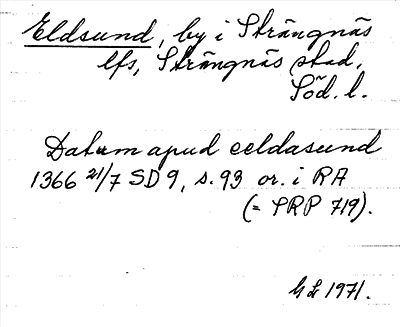 Eldsund, by i Strängnäs
lfs, Strängnäs stad,
Söd. l.
Datum apud eeldasund
1366 21/7 SD 9, s. 93 or. i RA
(= SRP 719).
G L 1971.